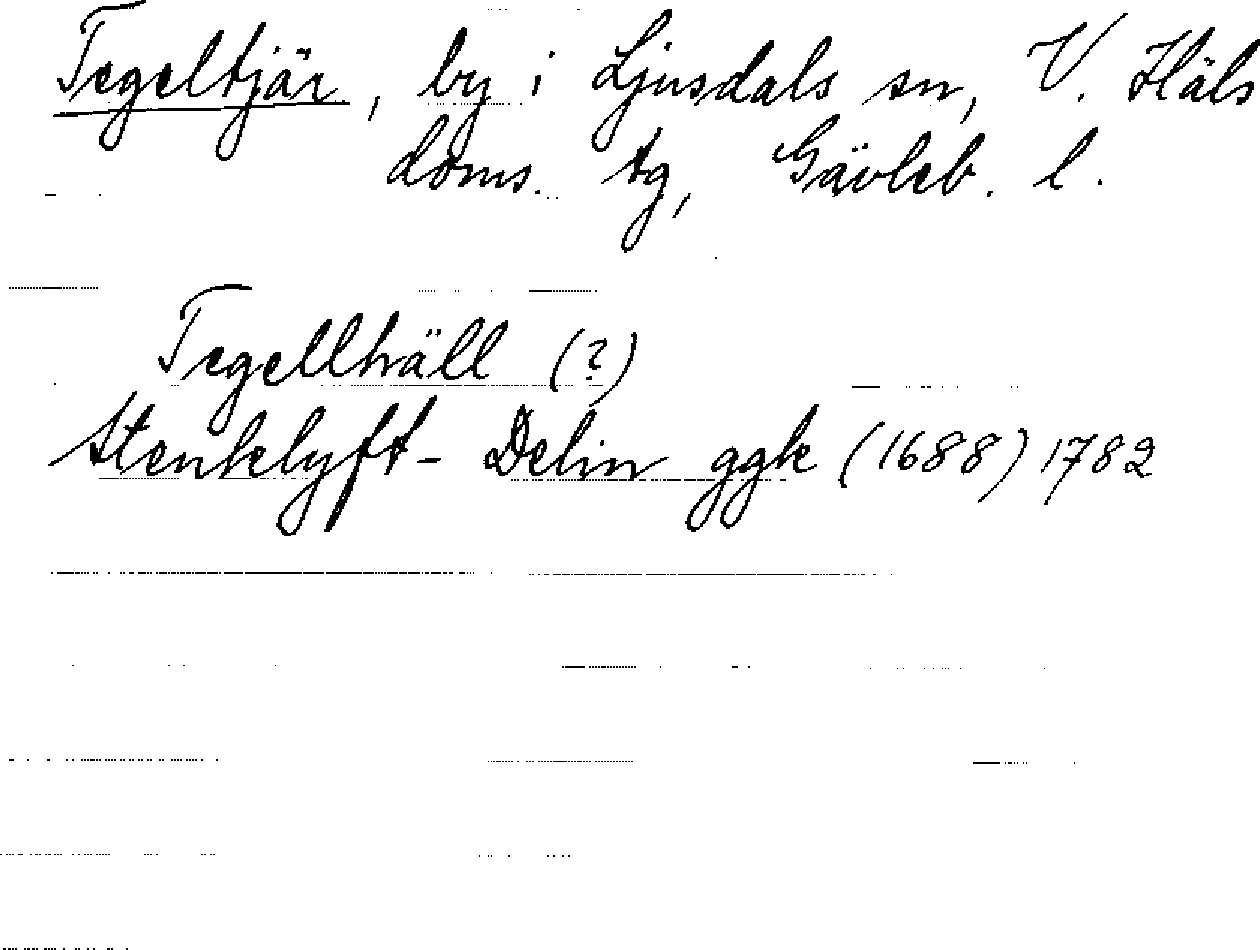 Tegeltjär, by i Ljusdals sn, V. Häls
doms. tg, Gävleb. l.
Tegellhäll (?)
Stenklyft- Delin ggk (1688) 1782